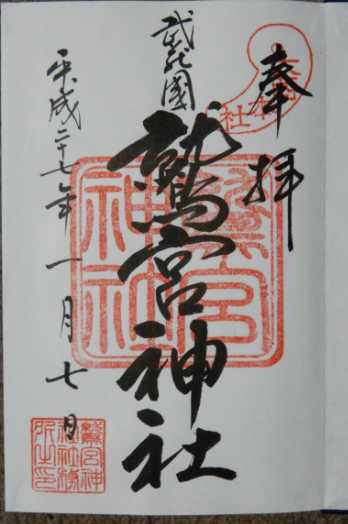 奉拝
武蔵國
鷲宮神社
平成二十七年一月七日
鷲宮神社
鷲宮神
社社務
所之印